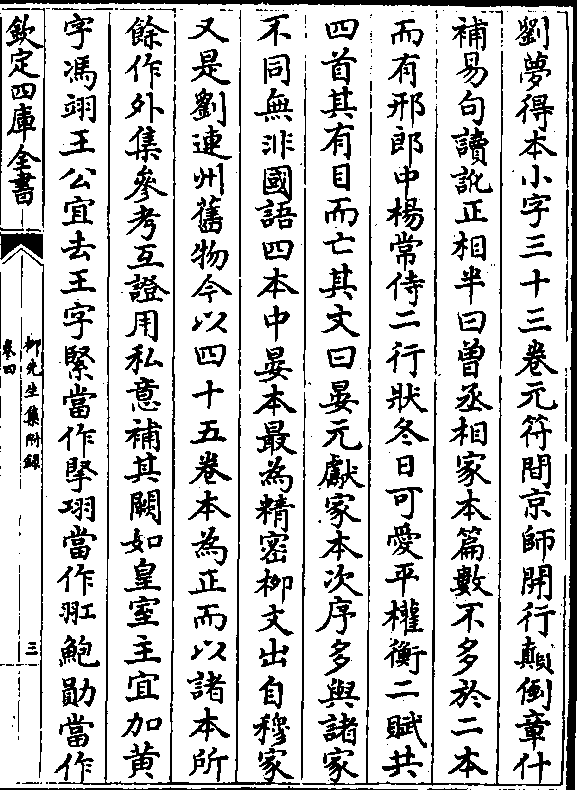 劉夢得本小字三十三卷元符間京師開行顛倒章什
補易句讀訛正相半曰曾丞相家本篇數不多於二本
而有邢郎中楊常侍二行狀冬日可愛平權衡二賦共
四首其有目而亡其文曰晏元獻家本次序多與諸家
不同無非國語四本中晏本最為精密柳文出自穆家
又是劉連州舊物今以四十五卷本為正而以諸本所
餘作外集參考互證用私意補其闕如皇室主宜加黄
字馮翊王公宜去王字緊當作堅翊當作羾鮑勛當作
欽定四庫全書
柳先生集附錄
卷四
三